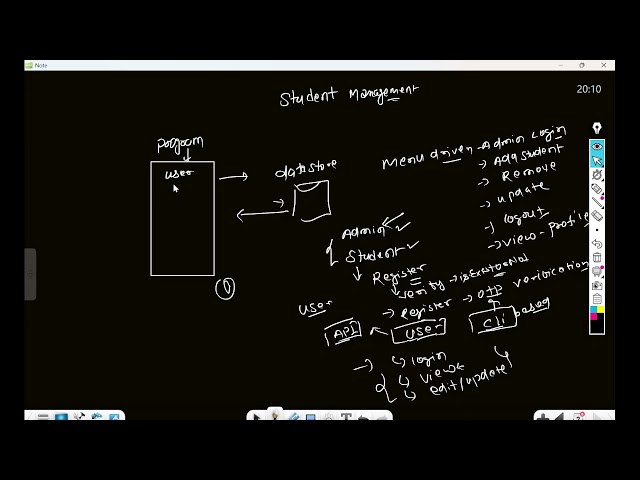 Note
20:10
Student Management
pogoam
user
datastore
①
Menu driven
→ Admin Login
→ Add Student
→ Remove
→ update
→ logout
→ view-profile
Admin ✓
Student ✓
↓ Register
↳ verify → isExistorNot
user
→ Register → OTP verification
API ← user
cli based
→ ↳ login
↳ view
↳ edit/update